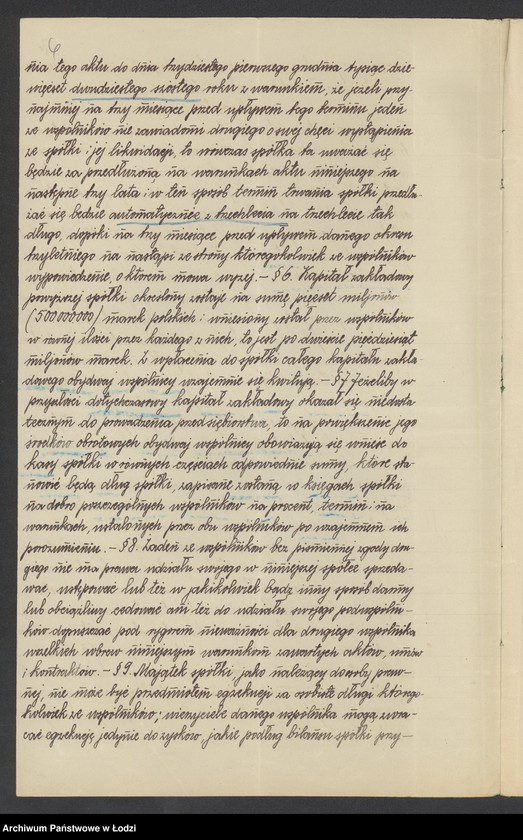 6
nia tego aktu do dnia trzydziestego pierwszego grudnia tysiąc dzie-
więćset dwudziestego szóstego roku z warunkiem, że jeżeli przy-
najmniej na trzy miesiące przed upływem tego terminu jeden
ze wspólników nie zawiadomi drugiego o swej chęci wystąpienia
ze spółki i jej likwidacji, to wówczas spółka ta uważać się
będzie za przedłużoną na warunkach aktu niniejszego na
następne trzy lata i w ten sposób termin trwania spółki przedłu-
żać się będzie automatycznie z trzechlecia na trzechlecie tak
długo, dopóki na trzy miesiące przed upływem danego okresu
trzyletniego nie nastąpi ze strony któregokolwiek ze wspólników
wypowiedzenie, o którem mowa wyżej. – § 6. Kapitał zakładowy
powyższej spółki określony zostaje na sumę pięćset miljonów
(500000000) marek polskich i wniesiony został przez wspólników
w równej ilości przez każdego z nich, to jest po dwieście pięćdziesiąt
miljonów marek. Z wpłacenia do spółki całego kapitału zakła-
dowego obydwaj wspólnicy wzajemnie się kwitują. – § 7. Jeżeliby w
przyszłości dotychczasowy kapitał zakładowy okazał się niedosta-
tecznym do prowadzenia przedsiębiorstwa, to na powiększenie jego
środków obrotowych obydwaj wspólnicy obowiązują się wnieść do
kasy spółki w równych częściach odpowiednie sumy, które sta-
nowić będą dług spółki, zapisane zostaną w księgach spółki
na dobro poszczególnych wspólników na procent, termin i na
warunkach, ustalonych przez obu wspólników po wzajemnem ich
porozumieniu. – § 8. Żaden ze wspólników bez piśmiennej zgody dru-
giego nie ma prawa udziału swojego w niniejszej spółce sprzeda-
wać, ustępować lub też w jakikolwiek bądź inny sposób darmy
lub obciążliwy cedować ani też do udziału swojego podwspólni-
ków dopuszczać pod rygorem nieważności dla drugiego wspólnika
wszelkich wbrew niniejszym warunkom zawartych aktów, umów
i kontraktów. – § 9. Majątek spółki, jako należący do osoby praw-
nej, nie może być przedmiotem egzekucji za osobiste długi którego-
kolwiek ze wspólników; wierzyciele danego wspólnika mogą zwra-
cać egzekucję jedynie do zysków, jakie podług bilansu spółki przy-
Archiwum Państwowe w Łodzi